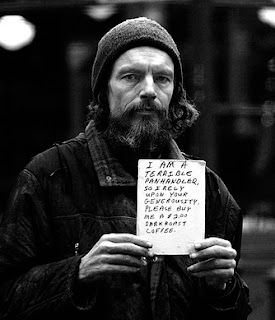 I AM A
TERRIBLE
PANHANDLER,
SO I RELY
UPON YOUR
GENEROUSITY.
PLEASE BUY
ME A $2.00
DARKROAST
COFFEE.